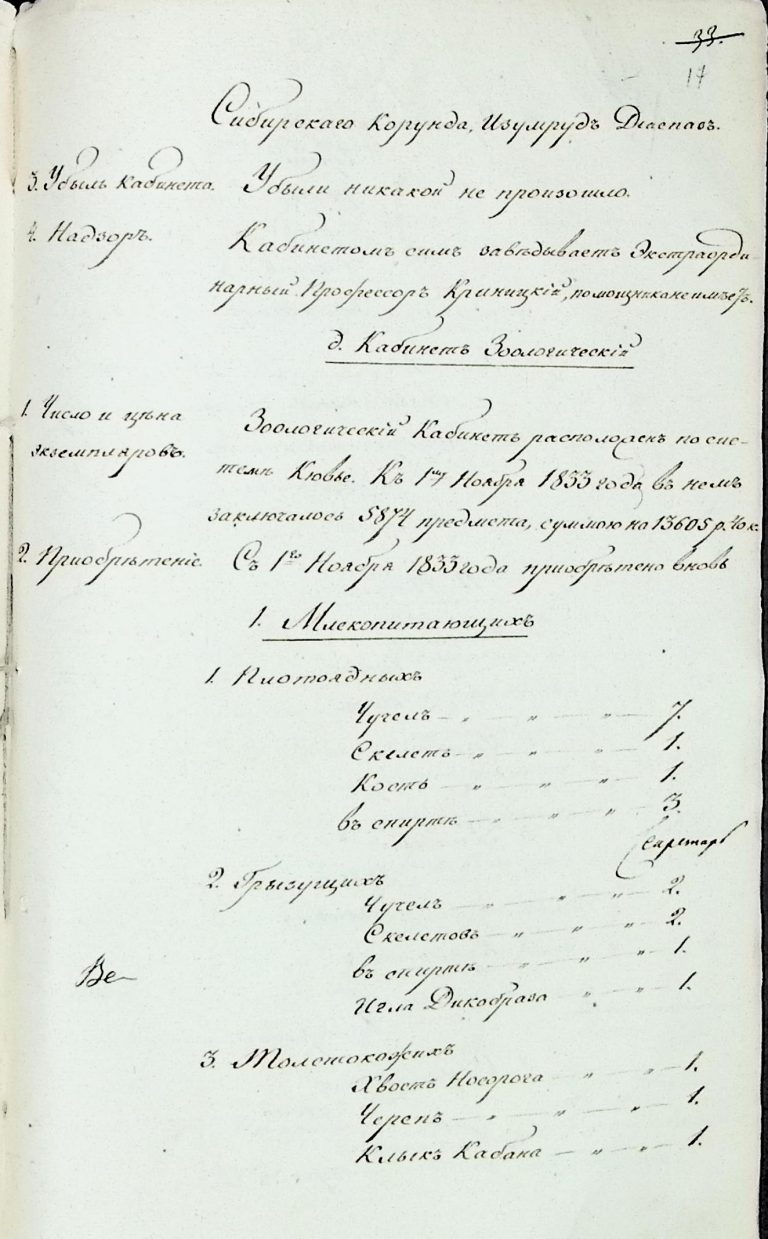 33.
17
Сибирскаго Корунда, Изумрудъ Діаспасъ.
3. Убыль Кабинета. Убыли никакой не произошло.
4. Надзоръ. Кабинетомъ симъ завѣдываетъ Экстраорди-
нарный Профессоръ Криницкій, помощника не имѣетъ.
д. Кабинетъ Зоологическій
1. Число и цѣна Зоологическій Кабинетъ расположенъ по сис-
экземпляровъ. темѣ Кювье. Къ 1му Ноября 1833 года въ немъ
заключалось 5874 предмета, суммою на 13605 р. 40 к.
2. Приобрѣтеніе. Съ 1го Ноября 1833 года приобрѣтено вновь
1. Млекопитающихъ
1. Плотоядныхъ
Чучелъ — „ — „ — „ — 7.
Скелетъ — „ — „ — „ — 1.
Кость — „ — „ — „ — 1.
въ спиртѣ — „ — „ — „ — 3.
Секретарь
2. Грызущихъ
Чучелъ — „ — „ — 2.
Скелетовъ — „ — „ — „ — 2.
въ спиртѣ — „ — „ — „ — 1.
Игла Дикобраза — „ — „ — 1.
Ве
3. Толстокожихъ
Хвостъ Носорога — „ — „ — 1.
Черепъ — „ — „ — „ — 1.
Клыкъ Кабана — „ — „ — 1.